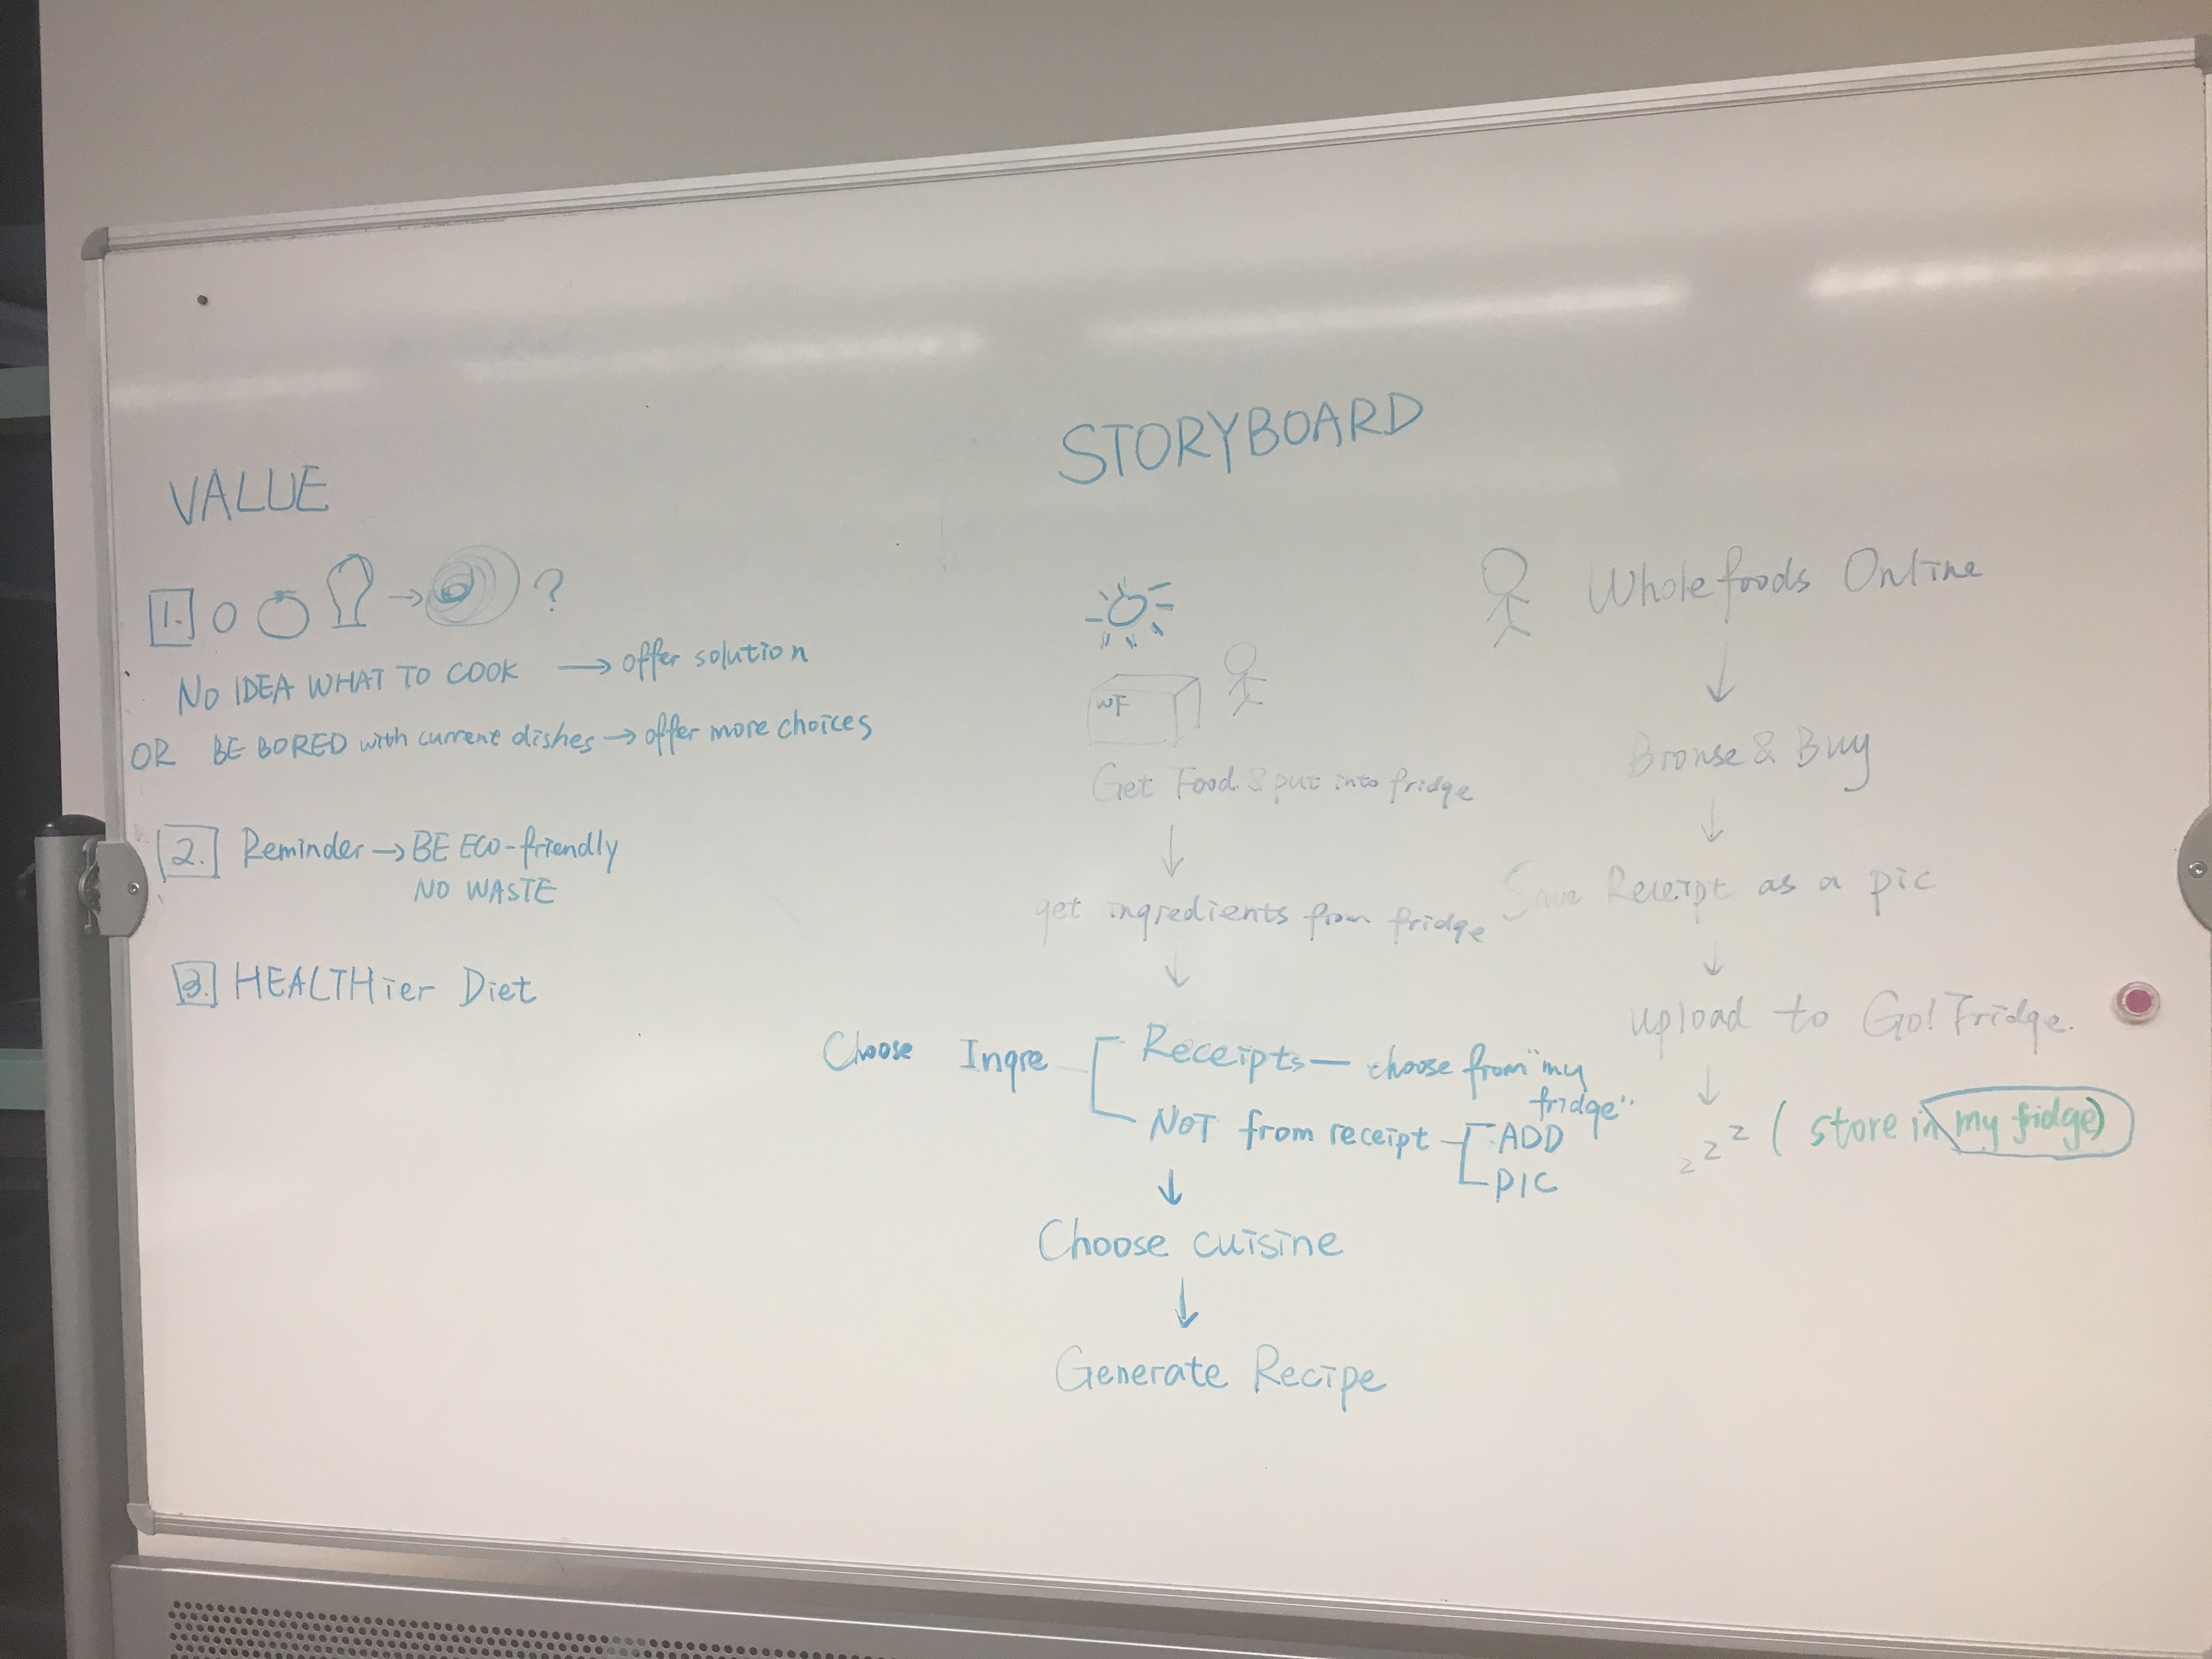 VALUE
1. → ?
NO IDEA WHAT TO COOK → offer solution
OR BE BORED with current dishes → offer more choices
2. Reminder → BE ECO-friendly
NO WASTE
3. HEALTHier Diet
STORYBOARD
WF
Get Food & put into fridge
↓
get ingredients from fridge
↓
Choose Ingre
Receipts — choose from "my
fridge"
NOT from receipt
ADD
PIC
↓
Choose cuisine
↓
Generate Recipe
Wholefoods Online
↓
Browse & Buy
↓
Save Receipt as a pic
↓
upload to Go! Fridge.
↓
z z z (store in my fridge)